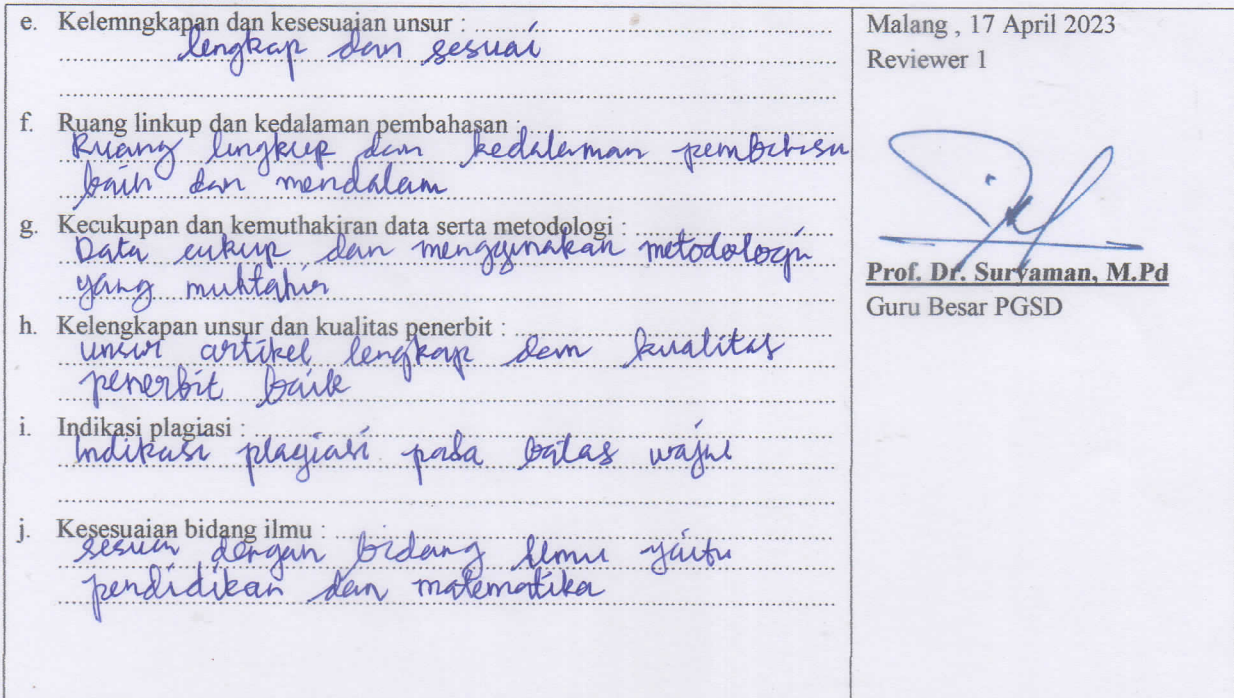 e. Kelemngkapan dan kesesuaian unsur :
lengkap dan sesuai
f. Ruang linkup dan kedalaman pembahasan :
Ruang lingkup dan kedalaman pembahasa
baik dan mendalam
g. Kecukupan dan kemuthakiran data serta metodologi :
Data cukup dan menggunakan metodologi
yang muhtahir
h. Kelengkapan unsur dan kualitas penerbit :
unsur artikel lengkap dan kualitas
penerbit baik
i. Indikasi plagiasi :
Indikasi plagiasi pada batas wajar
j. Kesesuaian bidang ilmu :
sesuai dengan bidang ilmu yaitu
pendidikan dan matematika
Malang , 17 April 2023
Reviewer 1
Prof. Dr. Suryaman, M.Pd
Guru Besar PGSD